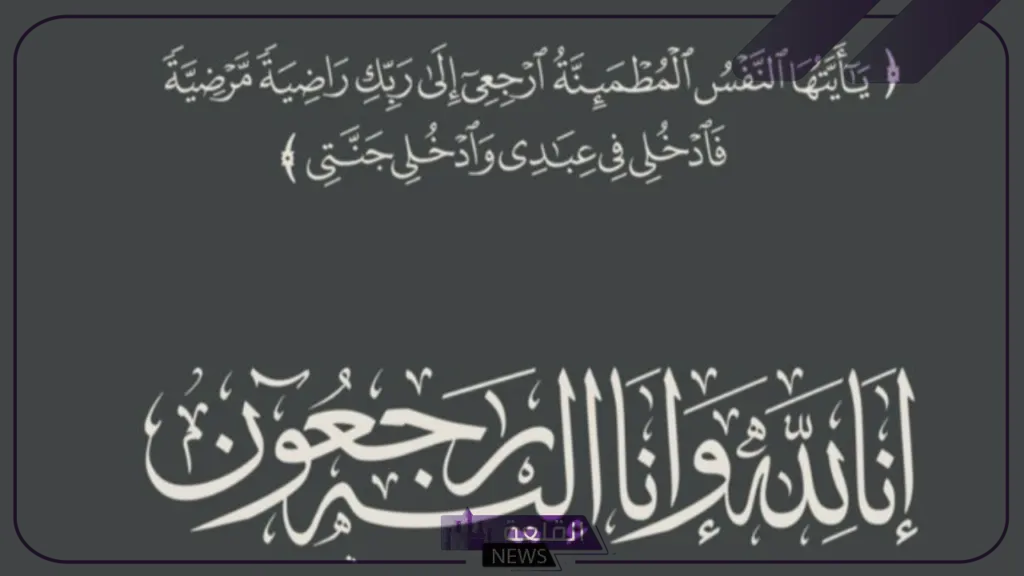 ﴿ يَـٰٓأَيَّتُهَا ٱلنَّفْسُ ٱلْمُطْمَئِنَّةُ ٱرْجِعِىٓ إِلَىٰ رَبِّكِ رَاضِيَةً مَّرْضِيَّةً
فَٱدْخُلِى فِى عِبَـٰدِى وَٱدْخُلِى جَنَّتِى ﴾
إِنَا لِلَّهِ وَإِنَا إِلَيْهِ رَاجِعُونَ
القلعة
NEWS